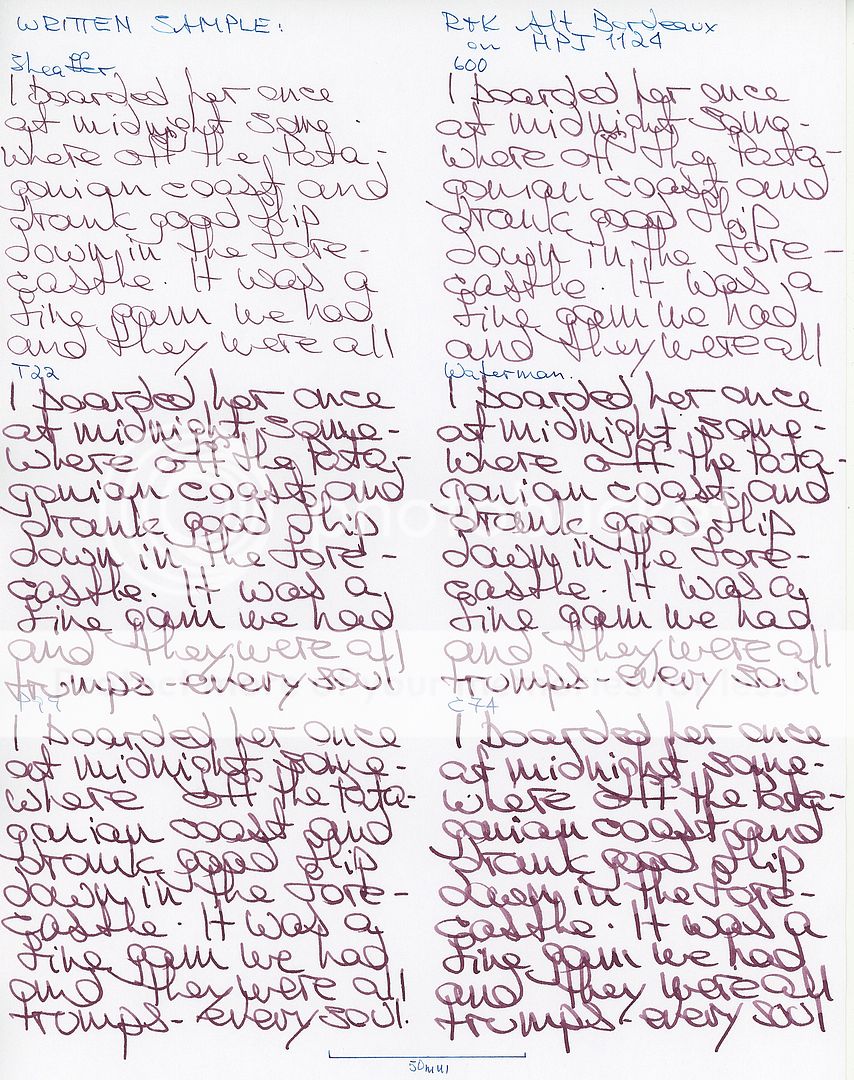 WRITTEN SAMPLE:
R+K Alt Bordeaux
on HPJ 1124
Sheaffer
I boarded her once
at midnight some-
where off the Pata-
gonian coast and
drank good flip
down in the fore-
castle. It was a
fine gam we had
and they were all
600
I boarded her once
at midnight some-
where off the Pata-
gonian coast and
drank good flip
down in the fore-
castle. It was a
fine gam we had
and they were all
T22
I boarded her once
at midnight some-
where off the Pata-
gonian coast and
drank good flip
down in the fore-
castle. It was a
fine gam we had
and they were all
trumps - every soul
Waterman.
I boarded her once
at midnight some-
where off the Pata-
gonian coast and
drank good flip
down in the fore-
castle. It was a
fine gam we had
and they were all
trumps - every soul
I boarded her once
at midnight some-
where off the Pata-
gonian coast and
drank good flip
down in the fore-
castle. It was a
fine gam we had
and they were all
trumps - every soul.
C74
I boarded her once
at midnight some-
where off the Pata-
gonian coast and
drank good flip
down in the fore-
castle. It was a
fine gam we had
and they were all
trumps - every soul
50mm
photobucket